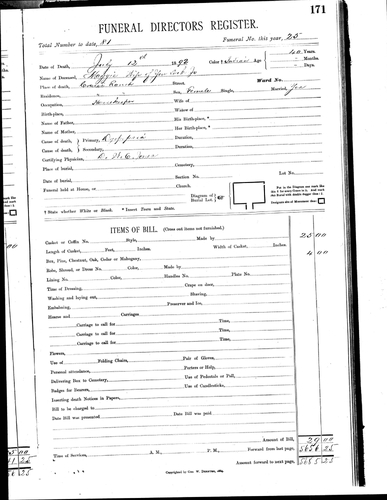 171
FUNERAL DIRECTORS REGISTER.
Total Number to date, 81 Funeral No. this year, 25
Date of Death, July 12th 1892 Color * Age 40 Years
" Months
" Days.
Name of Deceased, Maggie Wife of
Place of death, Ward No.
Residence, " " Street,
Sex, Female Single, Married, Yes
Occupation, Housekeeper Wife of
Birth-place, Widow of
Name of Father, His Birth-place, *
Name of Mother, Her Birth-place, *
Cause of death, Primary, Duration,
Cause of death, Secondary, Duration,
Certifying Physician, Dr.
Place of burial, Cemetery,
Date of burial, Section No. Lot No.
Funeral held at Home, or Church.
Diagram of Burial Lot,
Put in the Diagram one mark like
this X for every Grave in it. And mark
the Burial with double dagger thus ‡
Designate site of Monument thus
* State whether White or Black. * Insert Town and State.
ITEMS OF BILL. (Cross out items not furnished.)
Casket or Coffin No. Style, Made by 25 00
Length of Casket, Feet, Inches. Width of Casket, Inches.
Box, Pine, Chestnut, Oak, Cedar or Mahogany, 4 00
Robe, Shroud, or Dress No. Color, Made by
Lining No. Color, Handles No. Plate No.
Time of Dressing, Crape on door,
Washing and laying out, Shaving,
Embalming, Preserver and Ice,
Hearse and Carriages
Carriage to call for Time,
Carriage to call for Time,
Carriage to call for Time,
Carriage to call for Time,
Flowers,
Use of Folding Chairs, Pair of Gloves,
Personal attendance, Porters or Help,
Delivering Box in Cemetery, Use of Pedestals or Pall,
Badges for Bearers, Use of Candlesticks,
Inserting death Notices in Papers,
Bill to be charged to
Date Bill was presented Date Bill was paid
Amount of Bill, 29 00
Time of Services, A. M., P. M., Forward from last page, 5656 25
Amount forward to next page, 5685 25